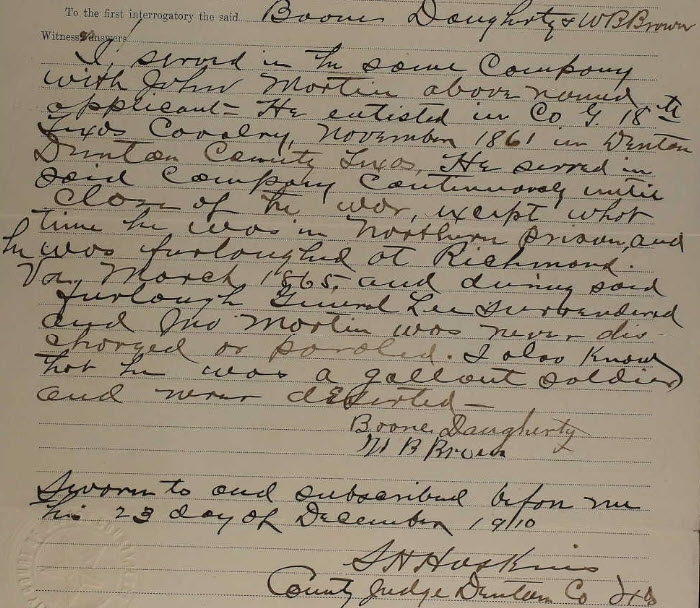 To the first interrogatory the said Boone Daugherty & W B Brown
Witness answers
I served in the same Company
with John Martin above named
applicant - He enlisted in Co G 18th
Texas Cavalry, November 1861 in Denton
Denton County Texas, He served in
said Company Continuously until
Close of the war, except what
time he was in Northern prison, and
he was furloughed at Richmond
Va, March 1865, and during said
furlough General Lee surrendered
and Jno Martin was never dis-
charged or paroled. I also know
that he was a gallant soldier
and never deserted -
Boone Daugherty
W B Brown
Sworn to and subscribed before me
this 23 day of December 1910
S H Hopkins
County Judge Denton Co